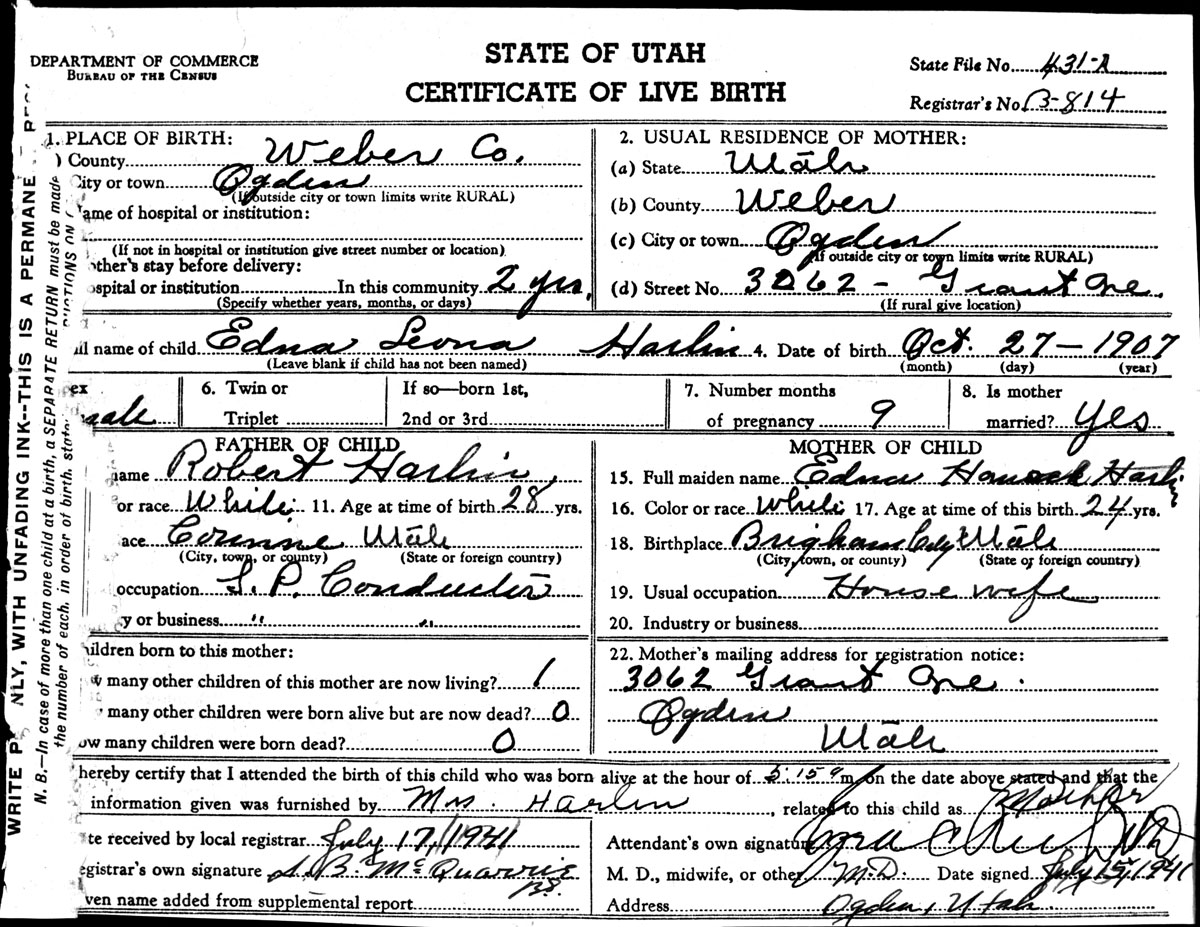 STATE OF UTAH
CERTIFICATE OF LIVE BIRTH
DEPARTMENT OF COMMERCE
BUREAU OF THE CENSUS
State File No. 431-A
Registrar's No. B-814
WRITE P NLY, WITH UNFADING INK--THIS IS A PERMANE
N. B.—In case of more than one child at a birth, a SEPARATE RETURN must be made
the number of each, in order of birth, state
1. PLACE OF BIRTH:
) County Weber Co.
City or town Ogden
(If outside city or town limits write RURAL)
ame of hospital or institution:
(If not in hospital or institution give street number or location)
other's stay before delivery:
ospital or institution In this community 2 yrs.
(Specify whether years, months, or days)
2. USUAL RESIDENCE OF MOTHER:
(a) State Utah
(b) County Weber
(c) City or town Ogden
(If outside city or town limits write RURAL)
(d) Street No. 3062 - Grant Ave.
(If rural give location)
ll name of child Edna Leona Harlin 4. Date of birth Oct. 27-1907
(Leave blank if child has not been named) (month) (day) (year)
ex
male
6. Twin or
Triplet
If so—born 1st,
2nd or 3rd
7. Number months
of pregnancy 9
8. Is mother
married? yes
FATHER OF CHILD
name Robert Harlin
or race White 11. Age at time of birth 28 yrs.
ace Corinne Utah
(City, town, or county) (State or foreign country)
occupation S. P. Conductor
y or business " "
MOTHER OF CHILD
15. Full maiden name Edna Harlin
16. Color or race White 17. Age at time of this birth 24 yrs.
18. Birthplace Brigham City Utah
(City, town, or county) (State or foreign country)
19. Usual occupation Housewife
20. Industry or business
hildren born to this mother:
w many other children of this mother are now living? 1
many other children were born alive but are now dead? 0
ow many children were born dead? 0
22. Mother's mailing address for registration notice:
3062 Grant Ave.
Ogden
Utah
hereby certify that I attended the birth of this child who was born alive at the hour of 5:15 a m on the date above stated and that the
information given was furnished by Mrs. Harlin, related to this child as Mother
te received by local registrar July 17, 1941
egistrar's own signature McQuarrie
ven name added from supplemental report
Attendant's own signature
M. D., midwife, or other M.D. Date signed July 15, 1941
Address Ogden, Utah.